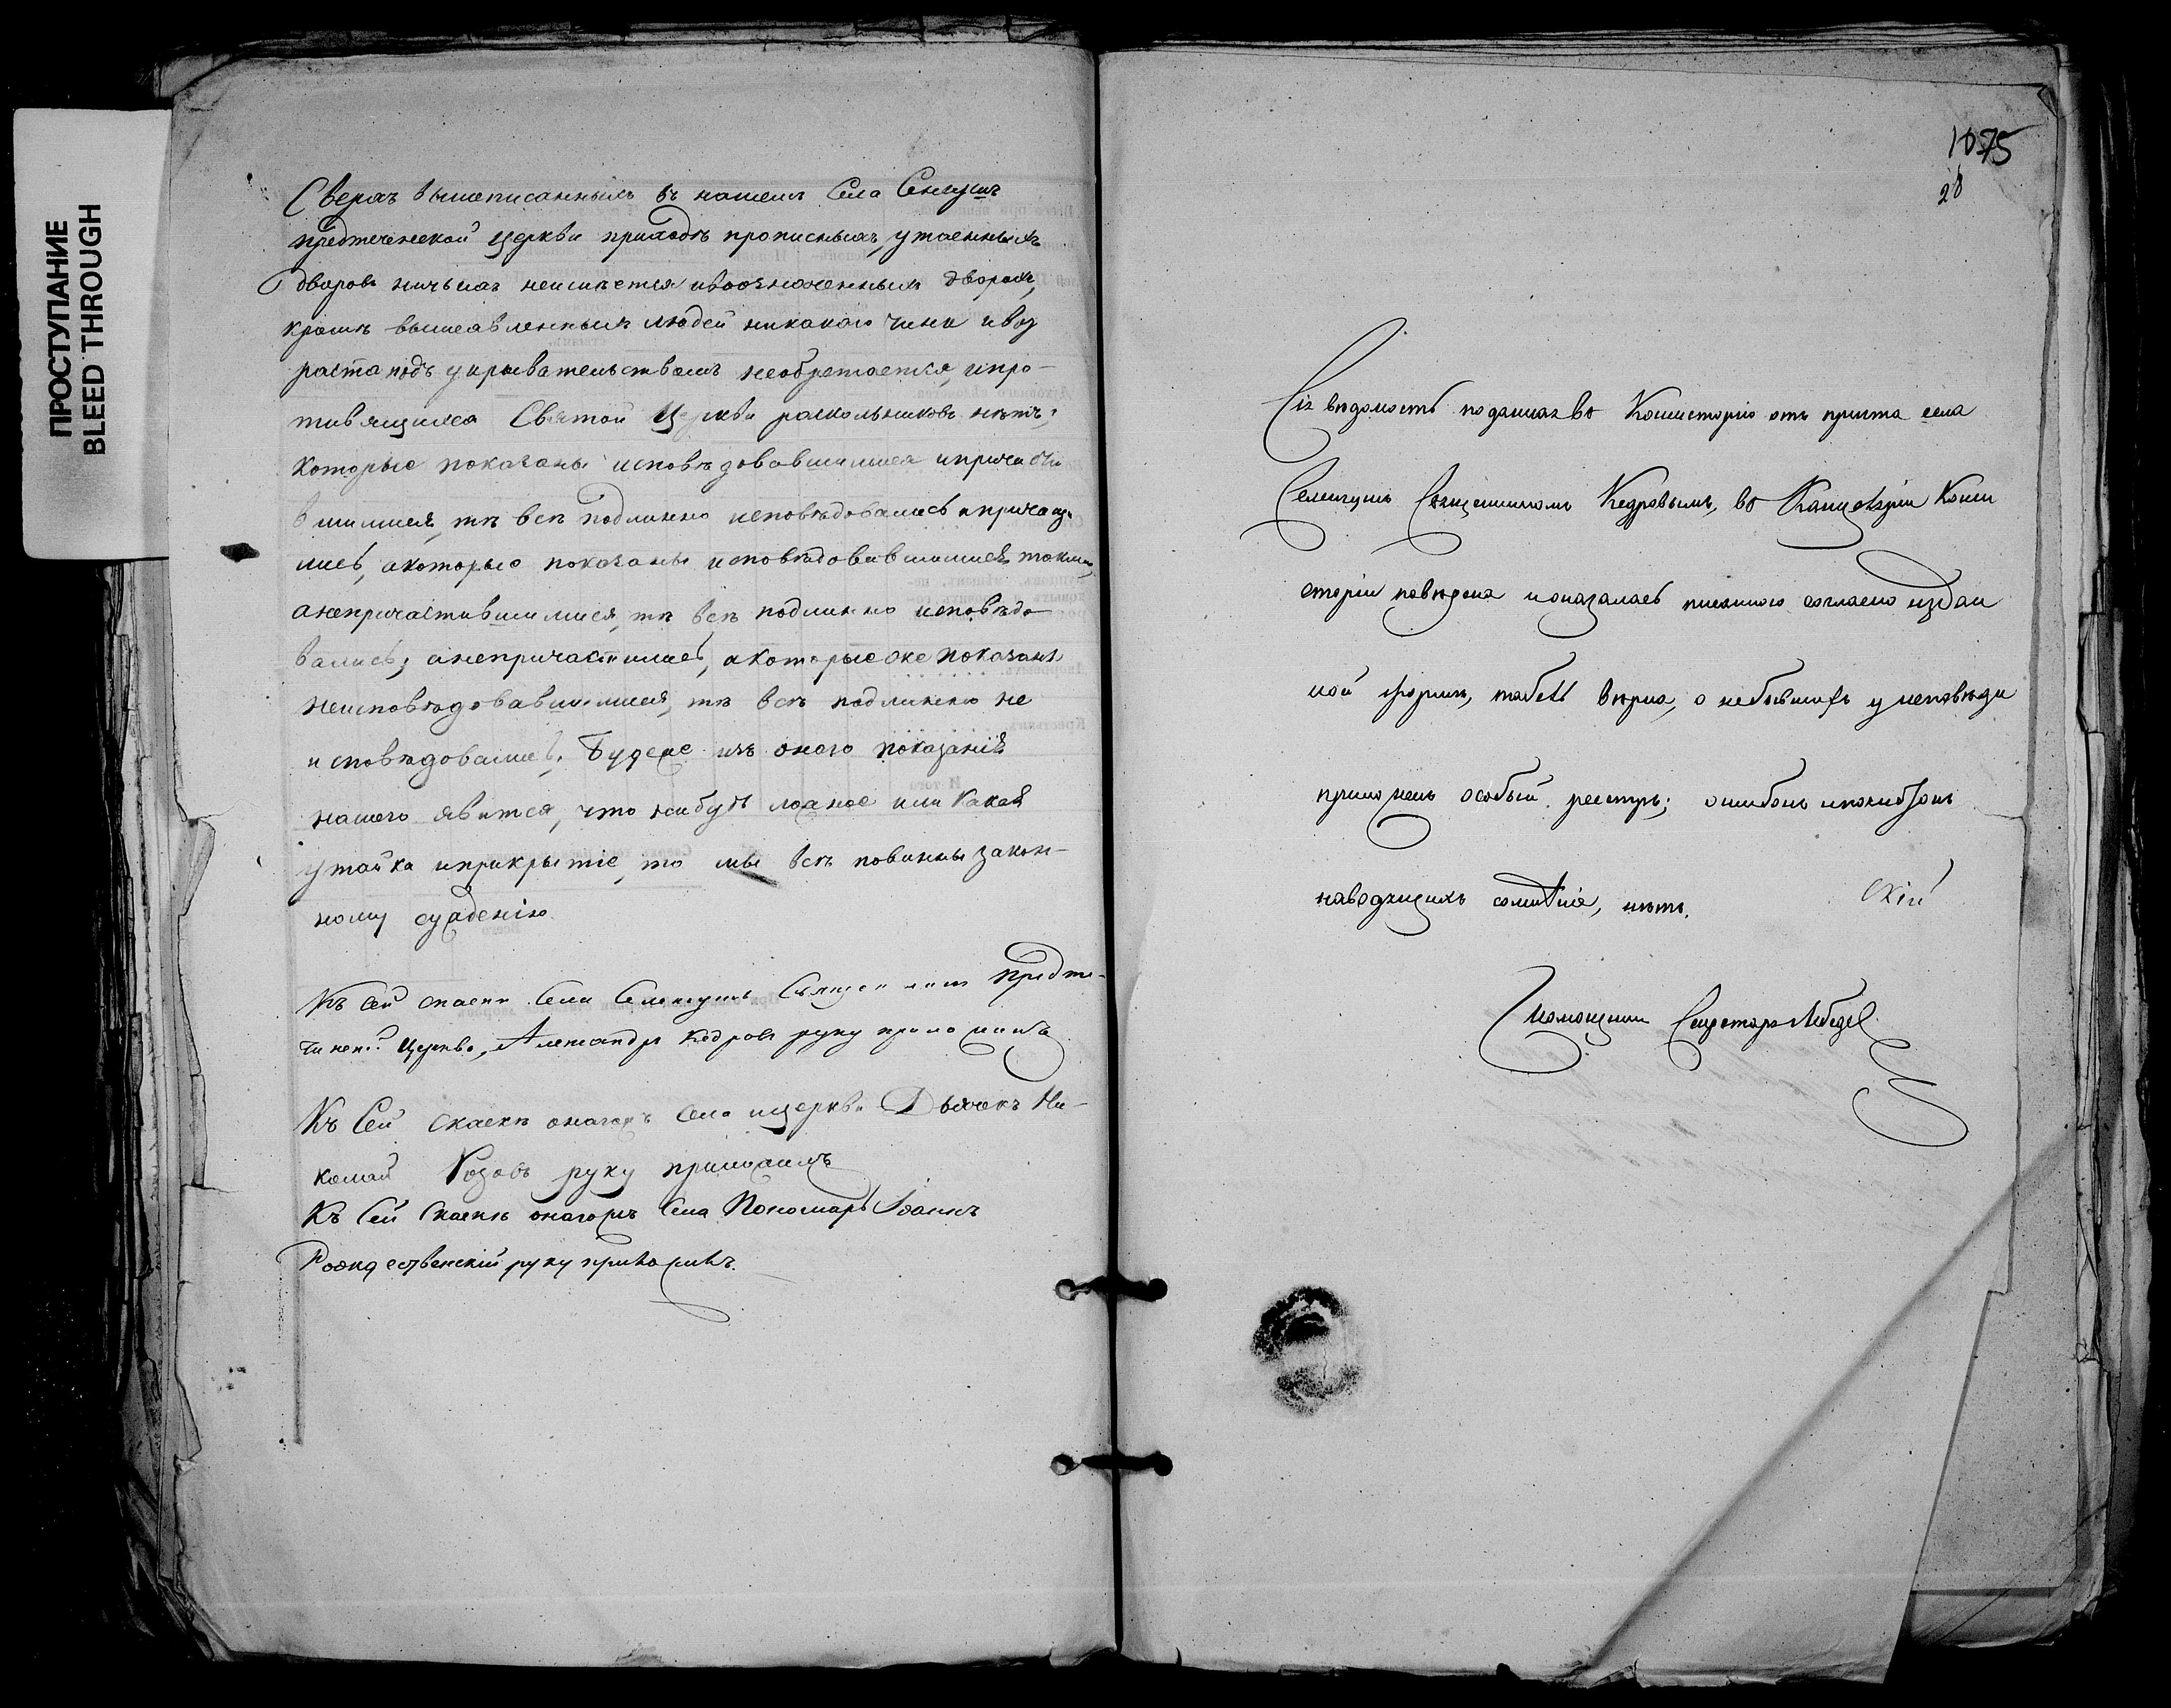 ПРОСТУПАНИЕ
BLEED THROUGH
Сверхъ вышеписанныхъ въ нашемъ Села
предтеченской церкви приходѣ прописныхъ, утаенныхъ
дворовъ ничьихъ неимѣется ивоозначенныхъ дворахъ,
кромѣ вышеявленныхъ людей никакого чина ивоз
раста подъ укрывательствомъ необретается, ипро-
тивящихся Святой Церкви раскольниковъ нѣтъ;
Которые показаны исповѣдовавшимися ипричасти
вшимися, тѣ всѣ подлинно исповѣдовались ипричащ
лись, акоторые показаны исповѣдовавшимися токмо,
анепричастившимися, тѣ всѣ подлинно исповѣдо-
вались; анепричастились, акоторыеже показаны
неисповѣдовавшимися, тѣ всѣ подлинно не
исповѣдовались. Будеже изъ оного показанія
нашего явится, что нибудь ложное или Какая
утайка иприкрытіе, то мы всѣ повинны закон-
ному сужденію.
Къ сей скаскѣ Села Священникъ Предте-
ченской Церкви, Александръ Кедровъ руку приложилъ
Къ Сей Скаскѣ оногожъ Села ицеркви Дьячекъ Ни-
колай Розовъ руку приложилъ
Къ Сей Скаскѣ оногожъ Села Пономарь Іоаннъ
Рождественскій руку приложилъ.
1075
28
Сія вѣдомость поданная во Консисторію отъ причта села
Священникомъ Кедровымъ, во Канцеляріи Конси
сторіи повѣрена иоказалась писанною согласно издан
ной формѣ, табель вѣрна, о небывшихъ уисповѣди
приложенъ особый реестръ; ошибокъ иподчистокъ
наводящихъ сомнѣніе, нѣтъ.
Помощникъ Секретаря Лебедевъ